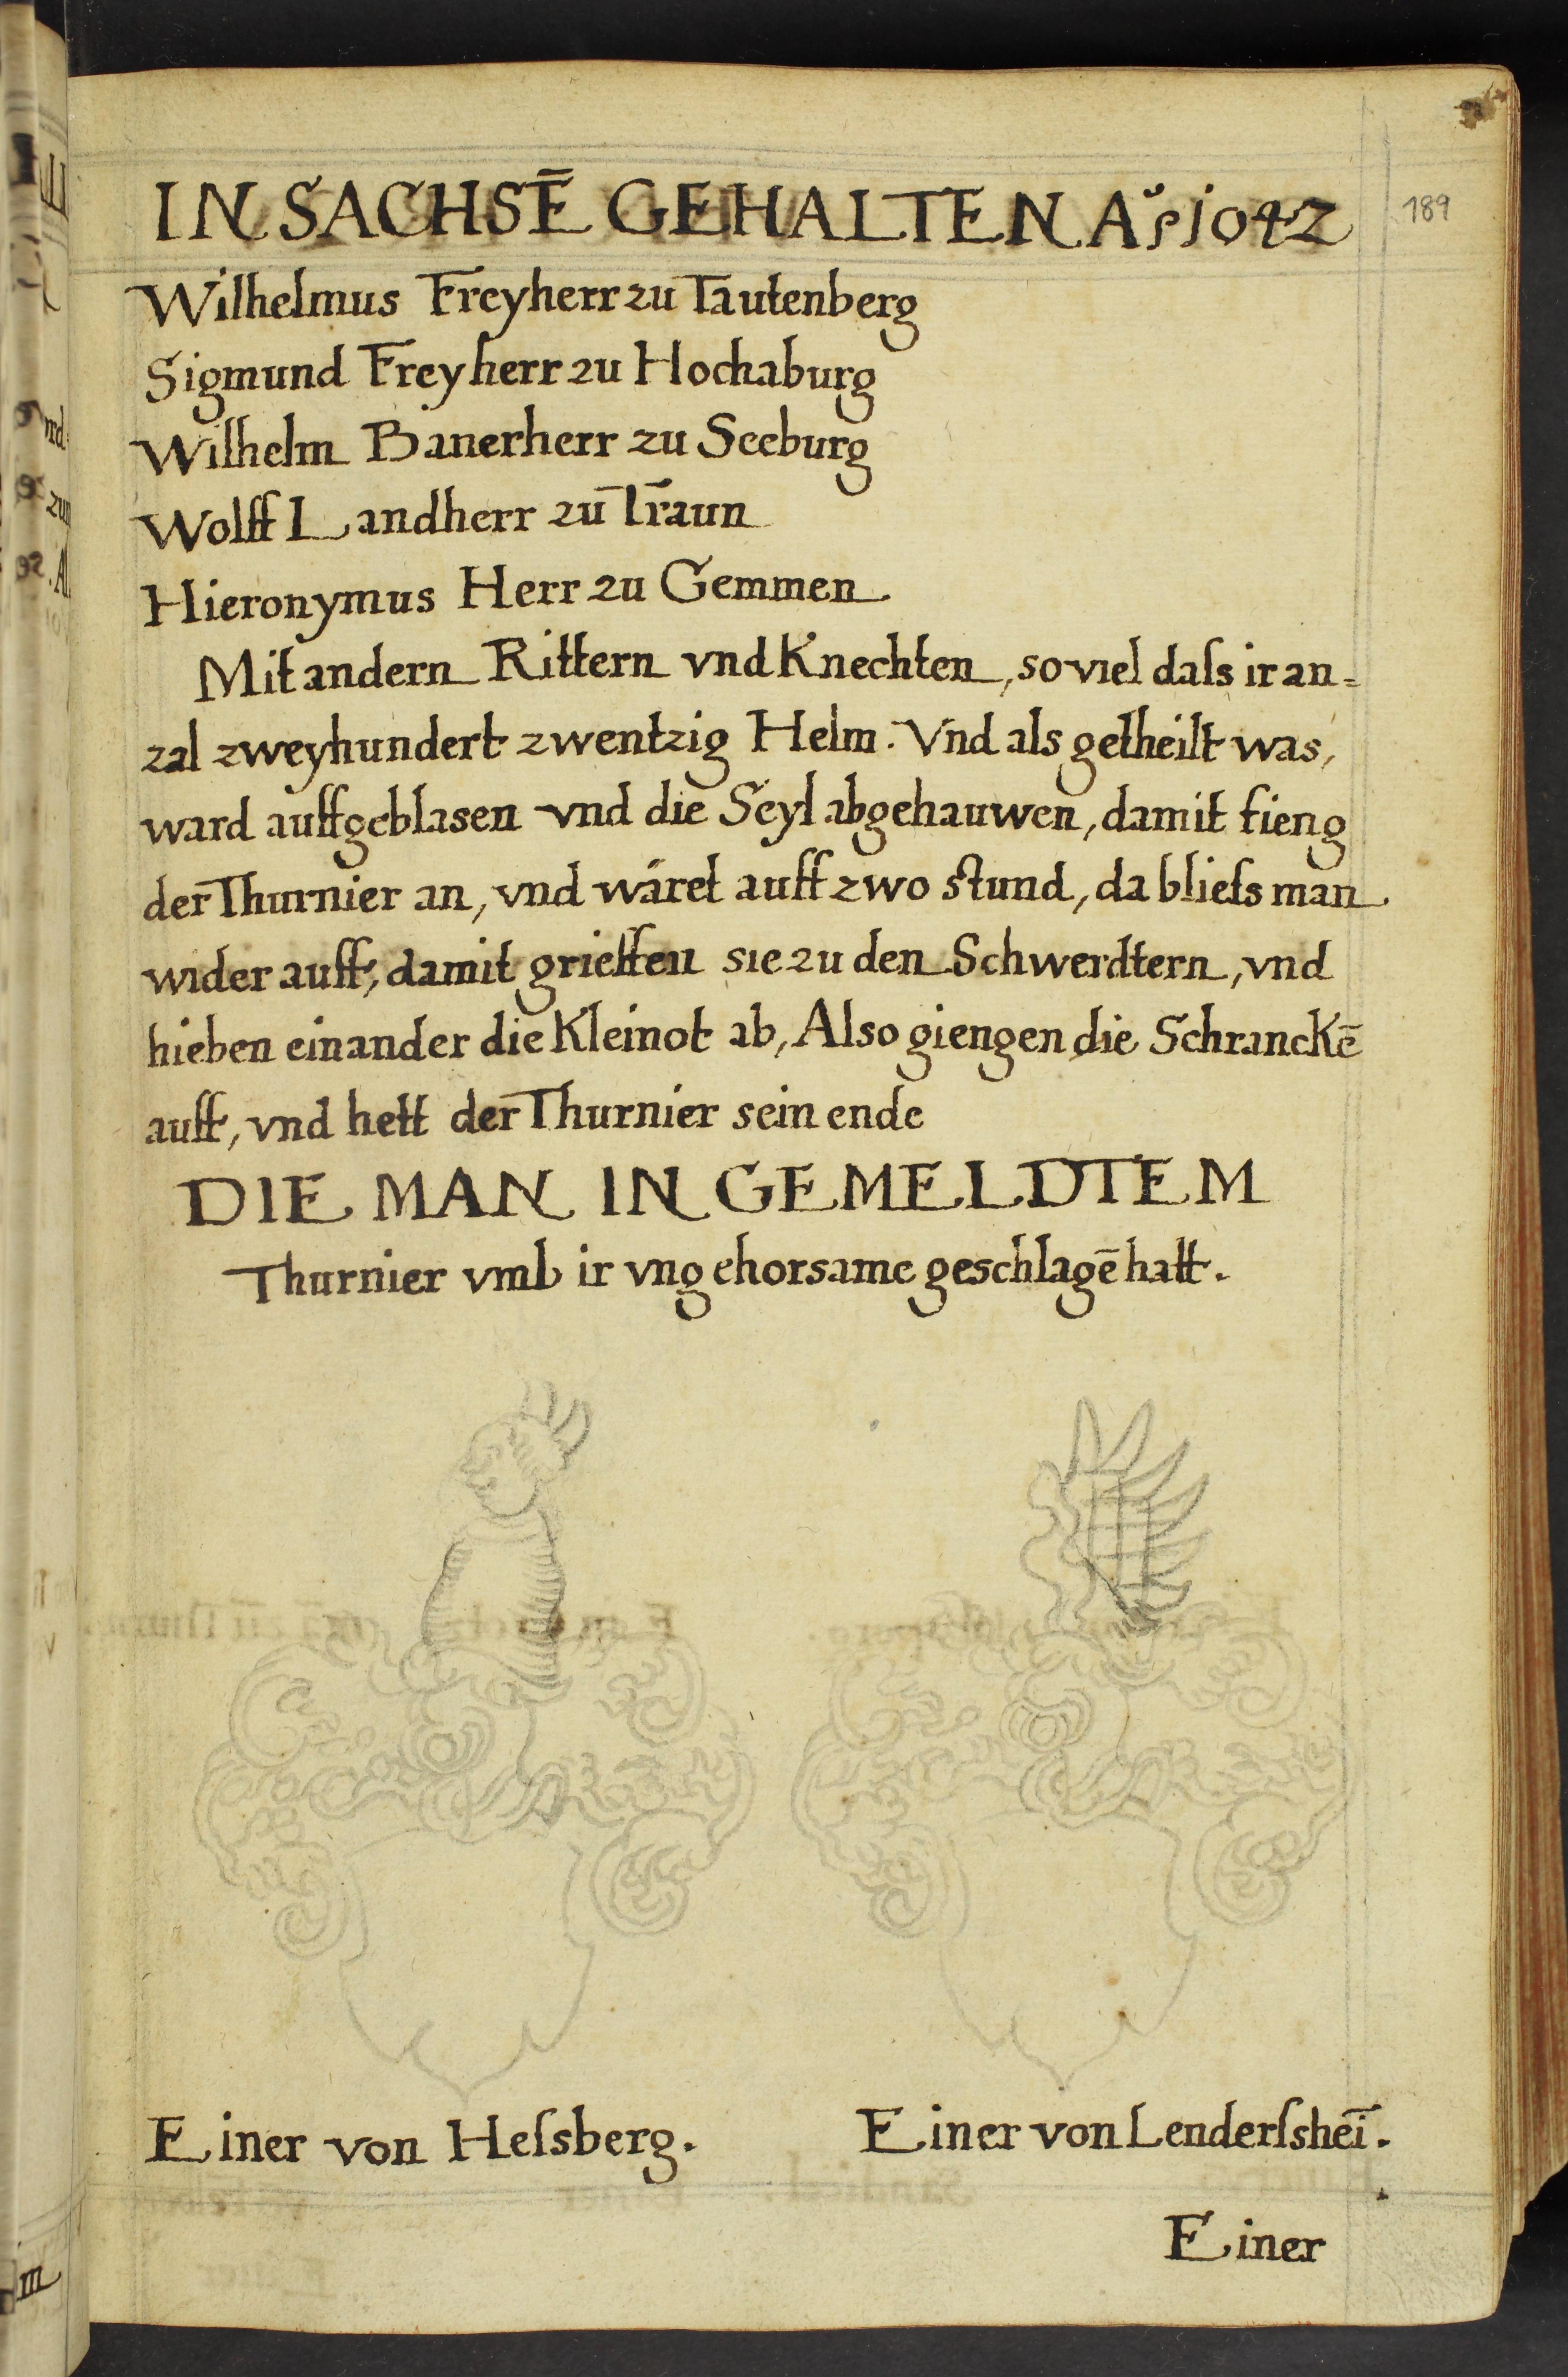 IN SACHSĒ GEHALTEN Aͦ 1042
189
Wilhelmus Freyherr zu Tautenberg
Sigmund Freyherr zu Hochaburg
Wilhelm Banerherr zu Seeburg
Wolff Landherr zu Traun
Hieronymus Herr zu Gemmen
Mit andern Rittern vnd Knechten, so viel daſs ir an-
zal zweyhundert zwentzig Helm. Vnd als getheilt was,
ward auffgeblasen vnd die Seyl abgehauwen, damit fieng
der Thurnier an, vnd wäret auff zwo stund, da blieſs man
wider auff, damit grieffen sie zu den Schwerdtern, vnd
hieben einander die Kleinot ab, Also giengen die Schranckē
auff, vnd hett der Thurnier sein ende
DIE MAN IN GEMELDTEM
Thurnier vmb ir vngehorsame geschlagē hatt.
Einer von Heſsberg.
Einer von Lenderſsheī.
Einer